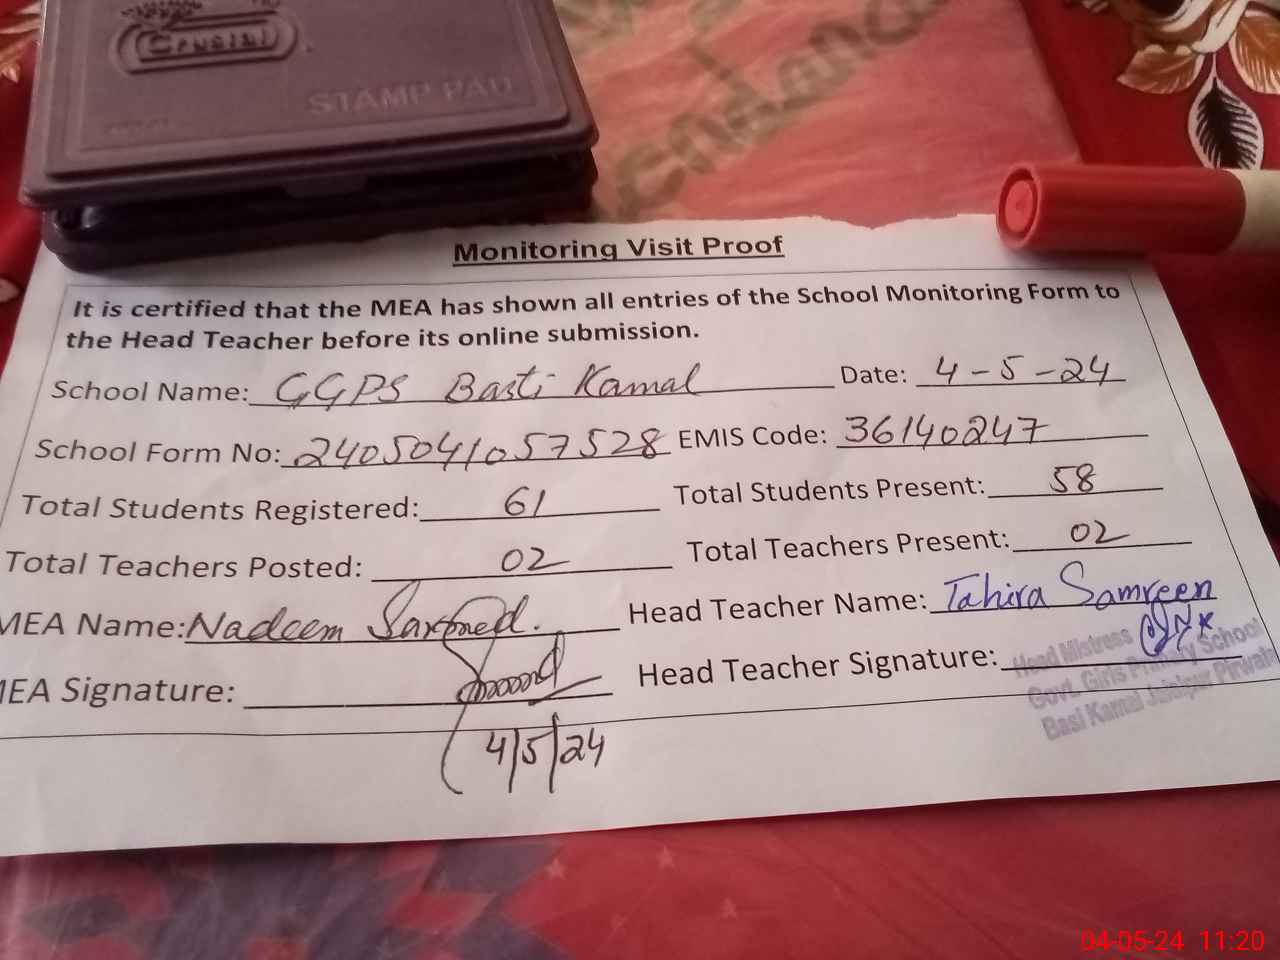 Crystal
STAMP PAD
Monitoring Visit Proof
It is certified that the MEA has shown all entries of the School Monitoring Form to
the Head Teacher before its online submission.
School Name: GGPS Basti Kamal Date: 4-5-24
School Form No: 2405041057528 EMIS Code: 36140247
Total Students Registered: 61 Total Students Present: 58
Total Teachers Posted: 02 Total Teachers Present: 02
MEA Name: Nadeem Sarmed. Head Teacher Name: Tahira Samreen
MEA Signature: Head Teacher Signature:
Head Mistress
Govt. Girls Primary School
Basi Kamal Jalalpur Pirwala
4/5/24
04-05-24 11:20